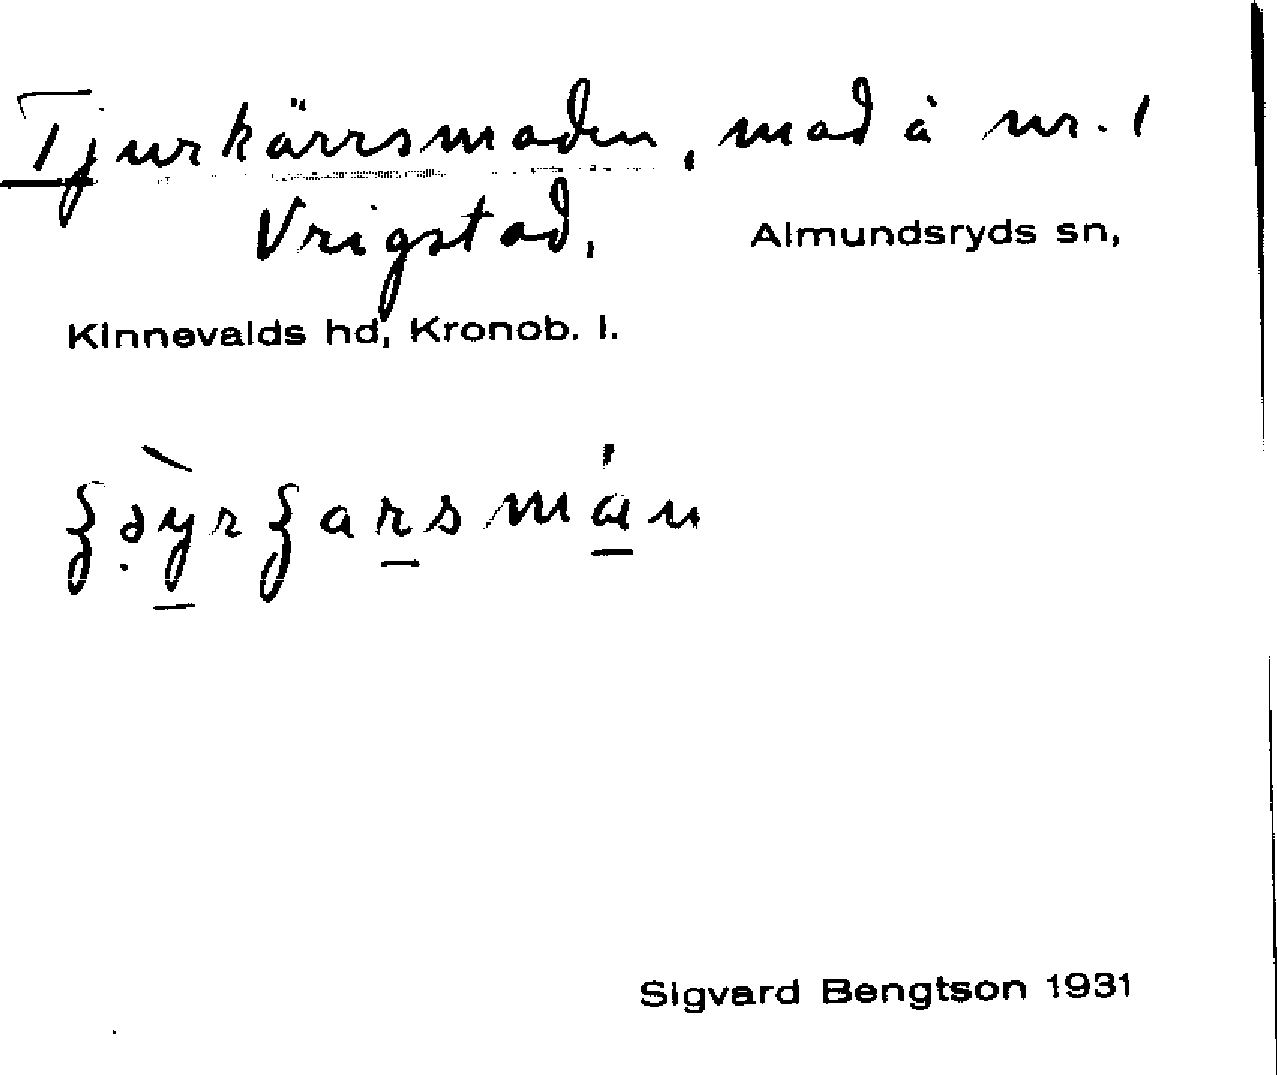 Tjurkärrsmaden, mad å nr. 1
Vrigstad, Almundsryds sn,
Kinnevalds hd, Kronob. l.
Sigvard Bengtson 1931